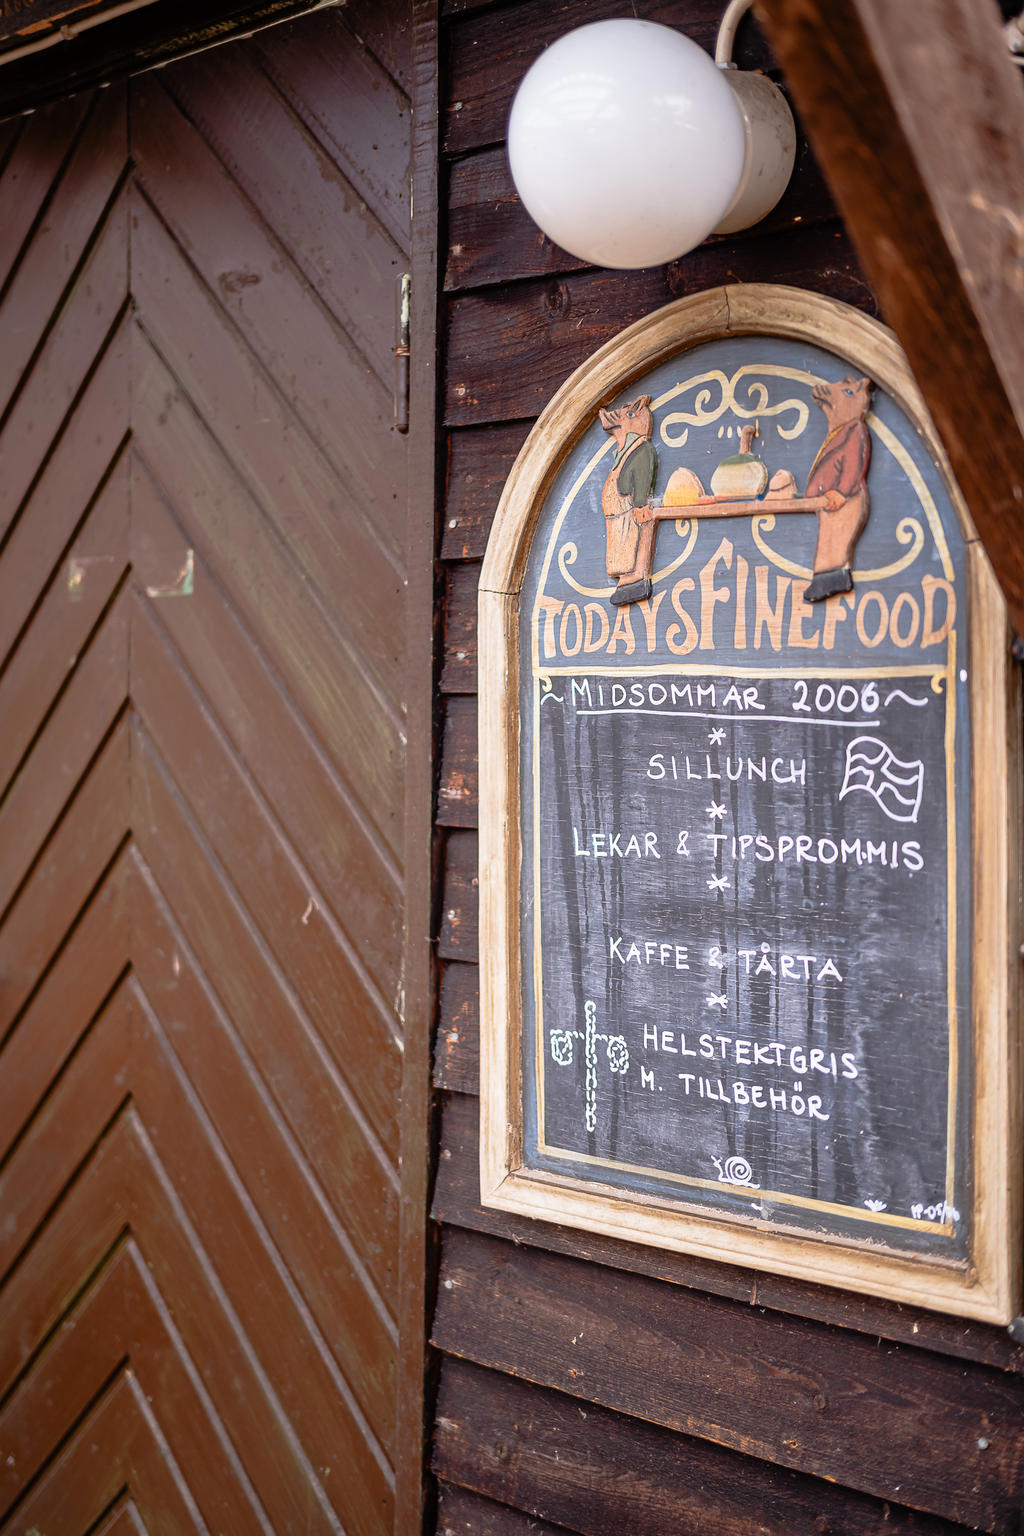 TODAYS FINE FOOD
~ MIDSOMMAR 2006 ~
*
SILLUNCH
*
LEKAR & TIPSPROMMIS
*
KAFFE & TÅRTA
*
HELSTEKTGRIS
M. TILLBEHÖR